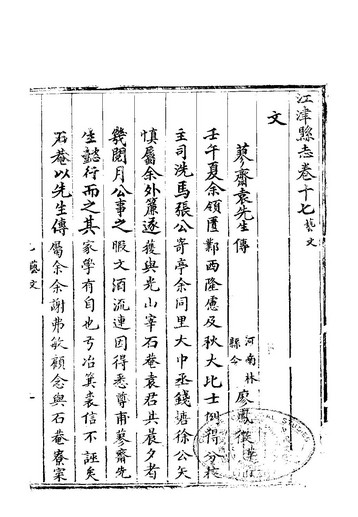 江津縣志卷十七 藝文
文
蓼齋袁先生傳
河南林縣令 廖鳳
壬午夏余領匱鄴西隆慮及秋大比士例得分校
主司洗馬張公寄亭余同里大中丞錢塘徐公矢
慎屬余外簾遂獲與光山宰石菴袁君共晨夕者
幾閱月公事之暇文酒流連因得悉尊甫蓼齋先
生懿行而之其家學有自也弓冶箕裘信不誣矣
石菴以先生傳屬余余謝弗敏顧念與石菴寮寀
藝文
一